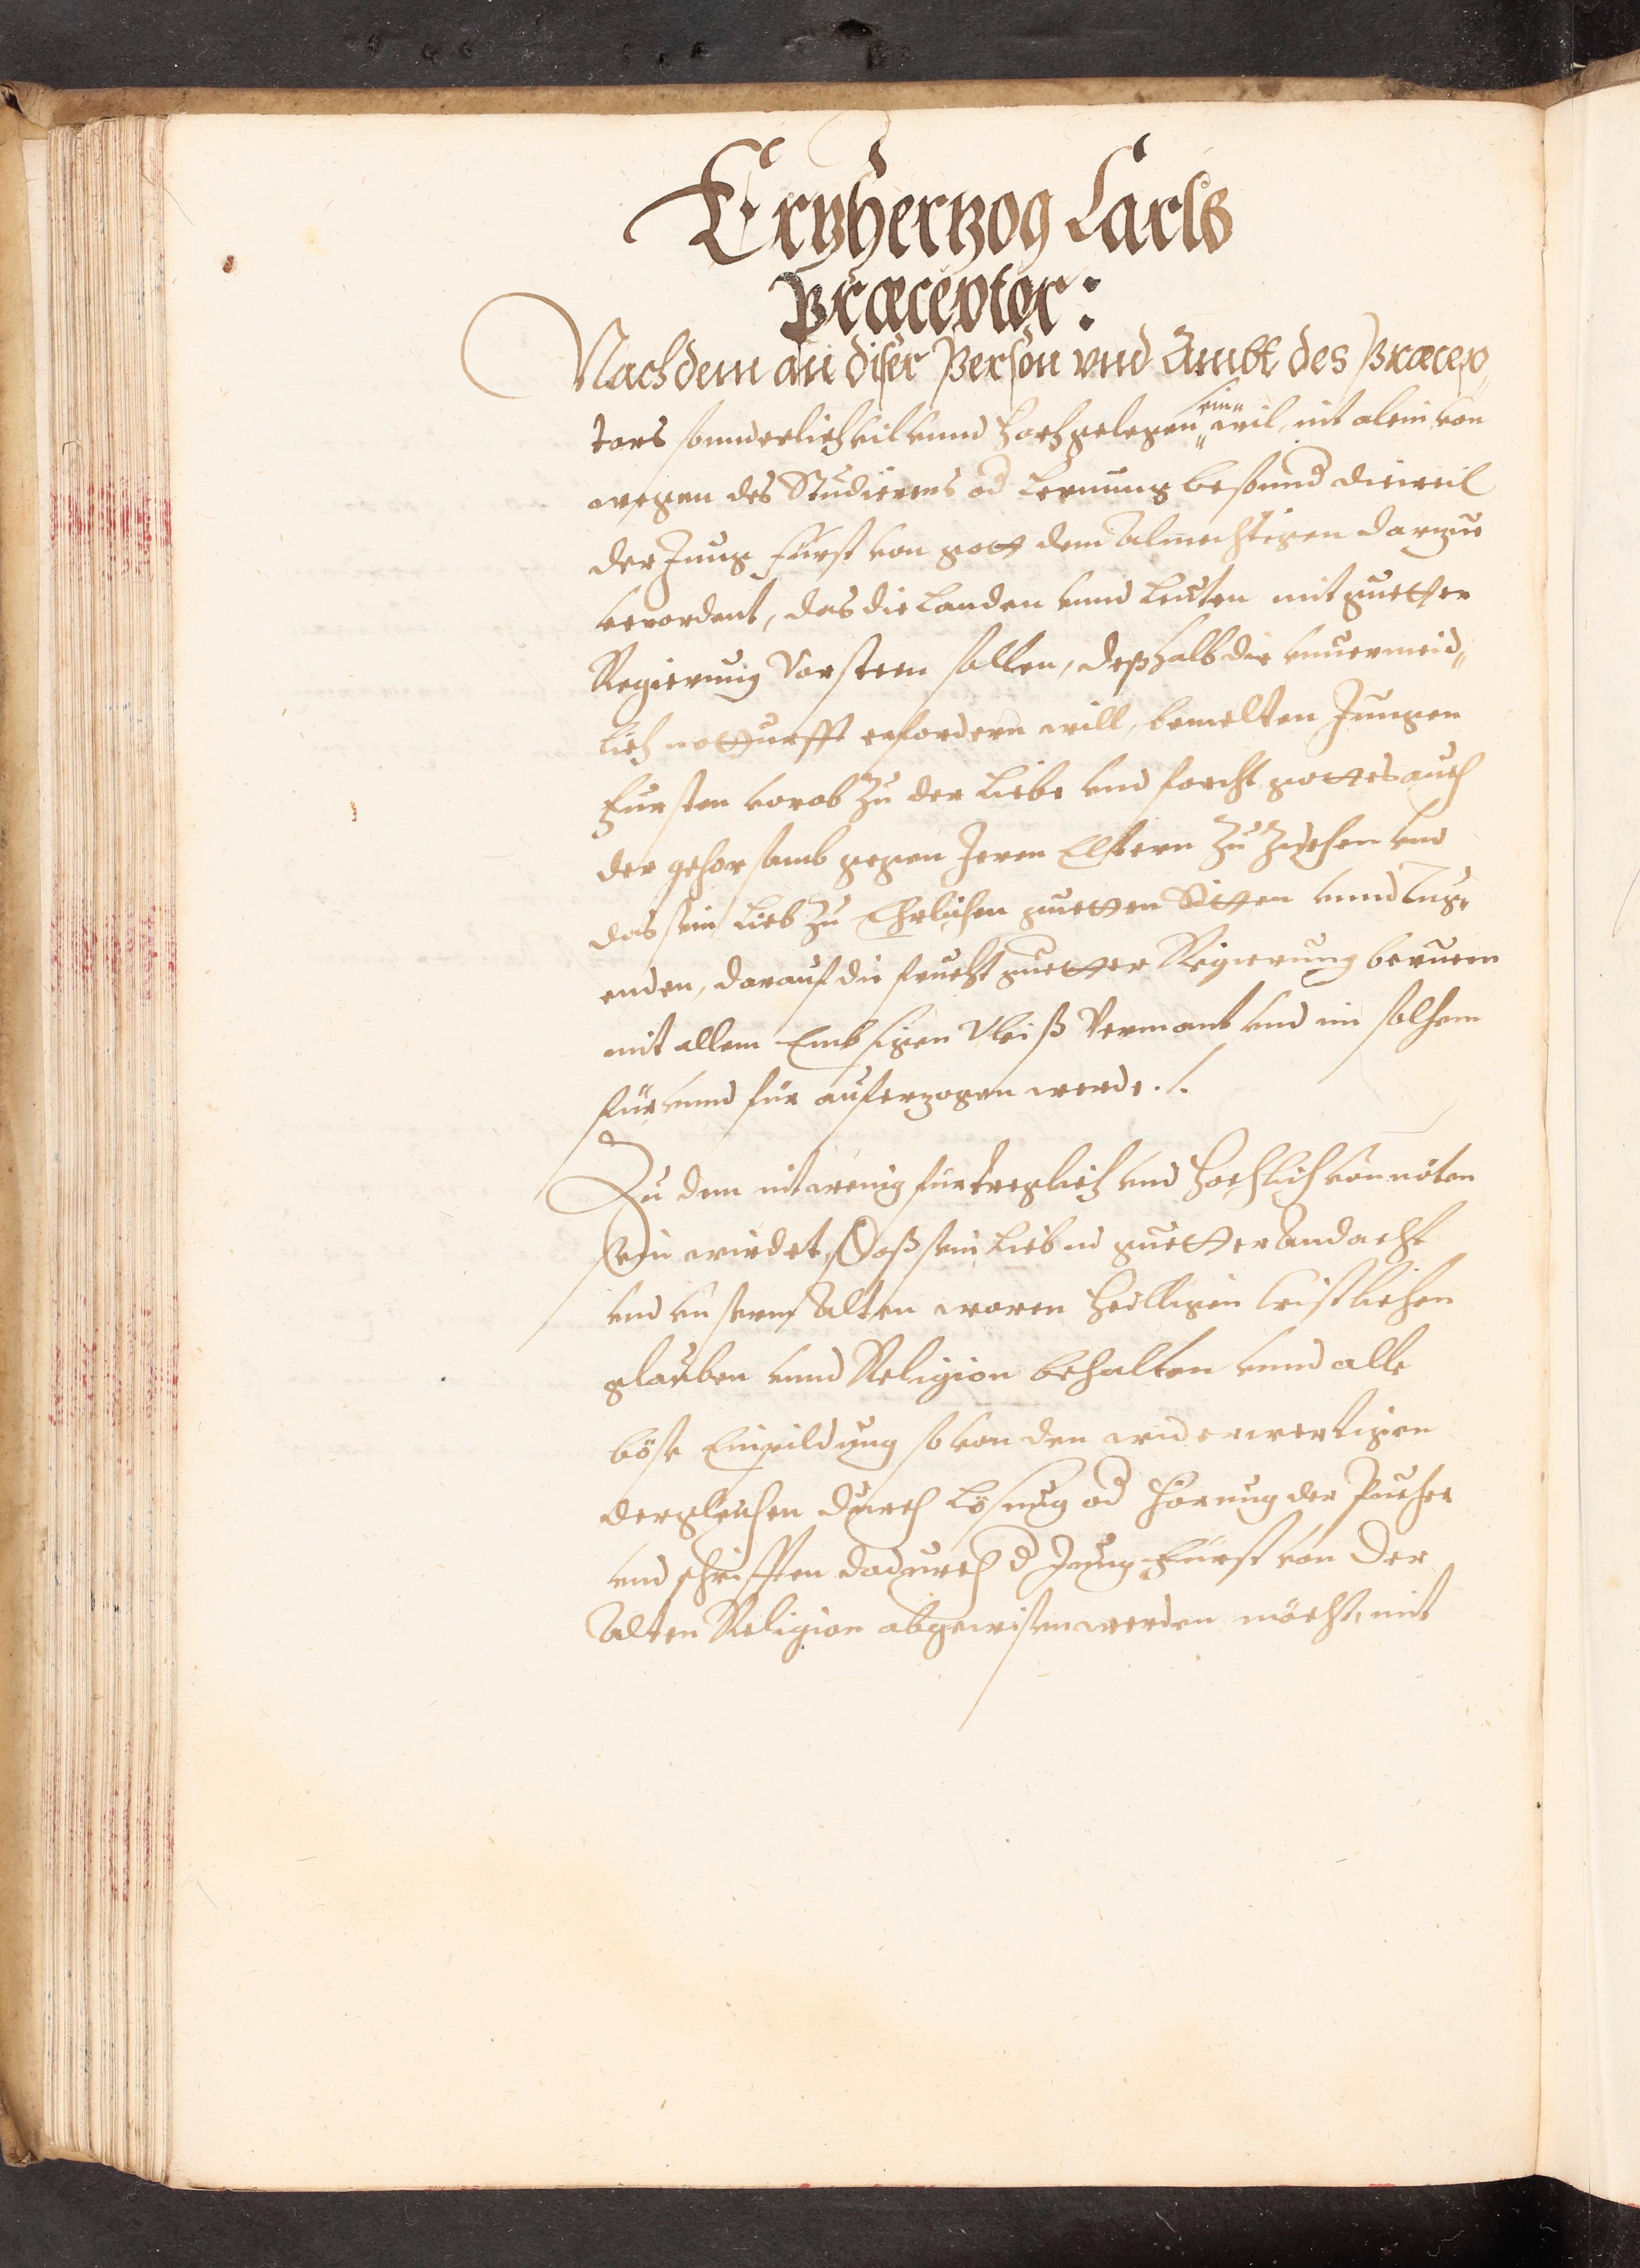 Ertzhertzog Carls
Præceptor:
Nachdem an diser Person vnd Ambt des Præcep„
tors sonnderlich vil vnnd hoch gelegen sein„ wil, nit alein von
wegen des Studierens od Lernung besonnd dieweil
der Jung Fürst von gott dem Almechtigen darzue
verordent, das die Landen vnnd Leuten mit guetter
Regierung Vorsteen sollen, deßhalb die vnuermeid„
lich notturfft erfordern will, bemelten Jungen
Fursten vorab Zu der Liebe vnd forcht gottes auch
der gehorsamb gegen Jeren Elltern Zu Ziehen vnd
das sein Lieb Zu Ehrlichen guetten Sitten vnnd Tug„
enden, darauf die frucht guetter Regierung beruen
mit allem Embsigen Vleiß Vermant vnd in solhem
für vnnd für auferzogen werde ./.
Zu dem nit wenig fürtreglich vnd hochlich vonnöten
sein wirdet, Daß sein Lieb in guetter Andacht
vnd vnserm Alten waren Heilligen Cristlichen
glauben vnnd Religion behalten vnnd alle
böse Einpildung so von den widerwertigen
dergleichen durch Lösnug od Hörnug der Puecher
vnd schrifften dadurch d Jung Fürst von der
Alten Religion abgewisen werden möcht, mit